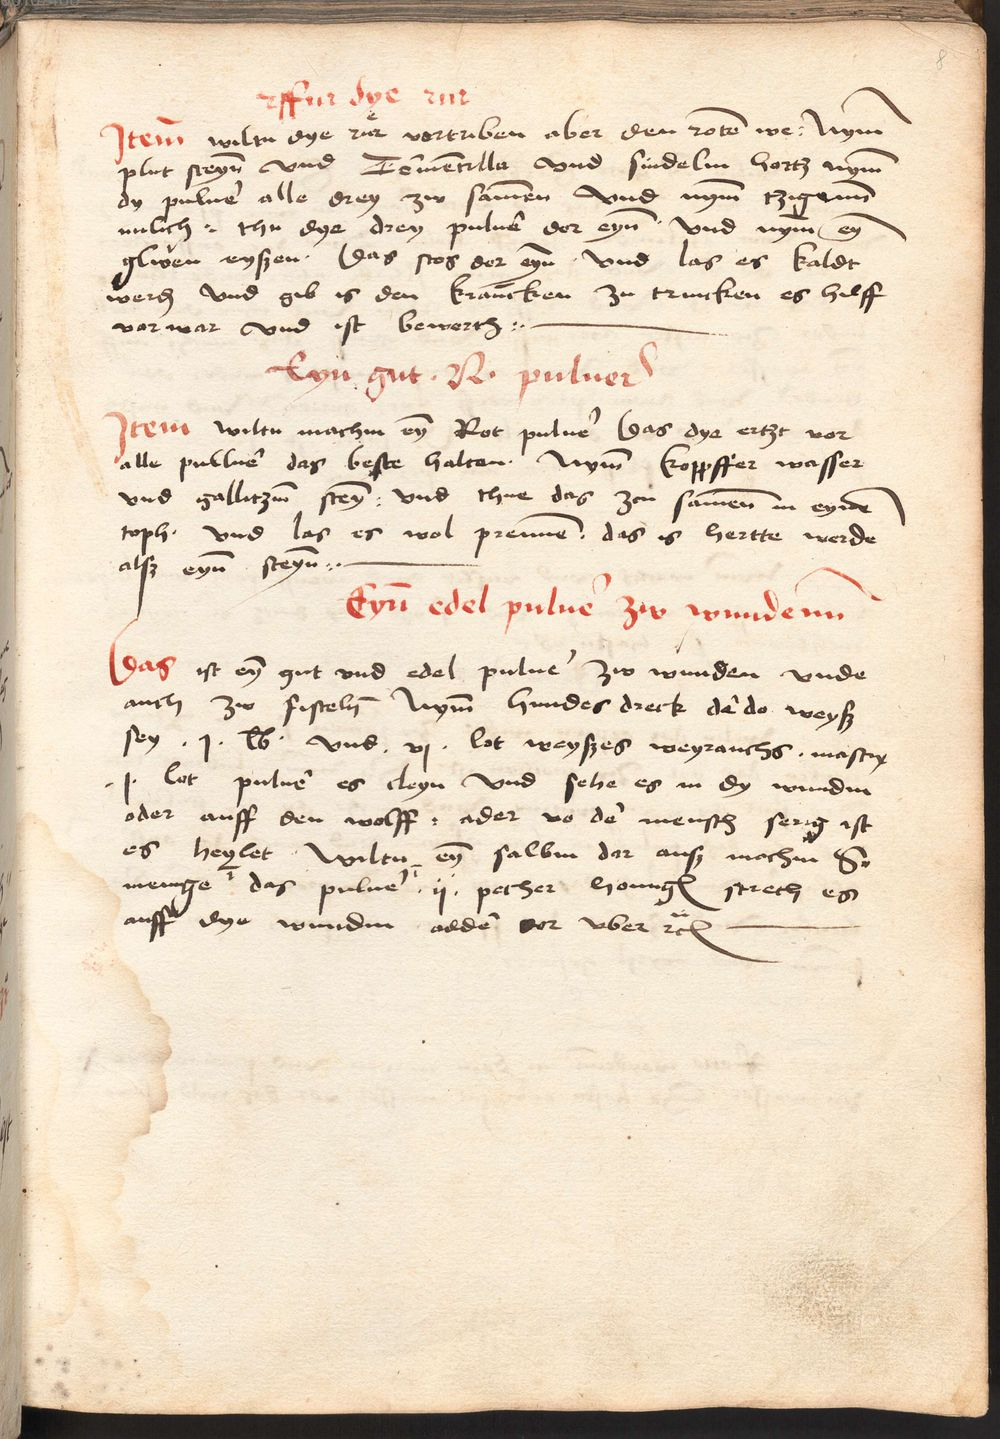 8
ffur dye rur
Item wiltu dye rur vertriben aber den roten we : Nym
plut steyn vnd Tormentilla vnd sindelin hortz nym
dy puluer alle drey zw samen vnd nym tzigenn
milich : thu dye drey puluer dor eyn vnd nym ey
gluen eyszen · Das stos der eyn · vnd las es kaldt
werden vnd gib is den krancken zu trincken es hilff
vor war vnd ist bewerth :
Eyn gut · R · puluer
Item wiltu machin eyn Rot puluer Das dye ertzt vor
alle puluer das beste halten · Nym koppffer wasser
vnd gallitzin steyn : vnd thue das zcu samen in eynen
toph · vnd las es wol prennen · das is hertte werde
alsz eyn steyn :
Eyn edel puluer zw wundenn
Das ist eyn gut vnd edel puluer zw wunden vnde
auch zw fisteln Nym hundes dreck der do weysz
sey · j · lb · vnd · vj · lot weyszes weyrauchs · mastix
· j · lot puluer es cleyn vnd sehe es in dy wundin
oder auff den wolff : ader wo der mensch serig ist
es heylet · wiltu eyn salbin dar ausz machin So
menge das puluer · ij · pecher honig strech es
auff dye wundin adder dor vber